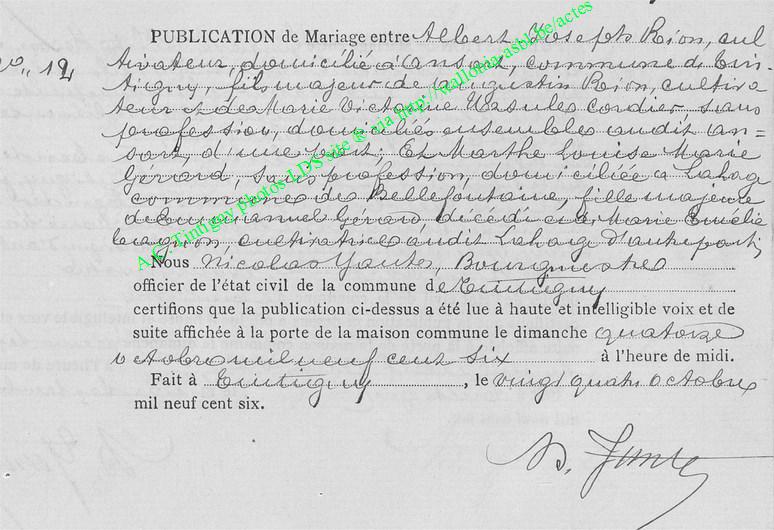 PUBLICATION de Mariage entre Albert Joseph Rion, cul
N° 12
tivateur, domicilié à Ansart, commune de Tin-
tigny, fils majeur de Augustin Rion, cultiva
teur et de Marie Victorine Ursule Cordier sans
profession, domiciliés ensembles audit An=
sart, d'une part; Et Marthe Louise Marie
Gérard, sans profession, domiciliée à Lahage
commune de Bellefontaine, fille majeure
de Emmanuel Gérard décédé et de Marie Emélie
cultivatrice audit Lahage d'autre part;
Nous Nicolas Bourgmestre
officier de l'état civil de la commune de Tintigny
certifions que la publication ci-dessus a été lue à haute et intelligible voix et de
suite affichée à la porte de la maison commune le dimanche quatorze
octobre mil neuf cent six à l'heure de midi.
Fait à Tintigny, le vingt quatre octobre
mil neuf cent six.
A.C. Tintigny photos LDS site @ via http://wallonia-asbl.be/actes